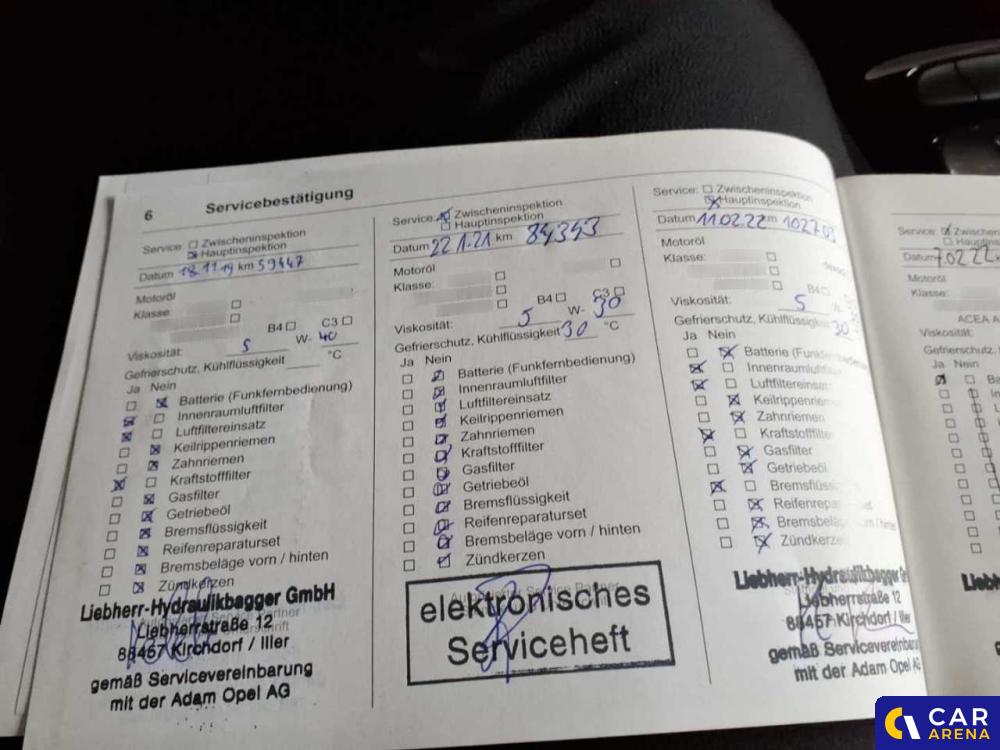 6 Servicebestätigung
Service: Zwischeninspektion
Hauptinspektion
Datum 18.11.19 km 59447
Motoröl
Klasse:
B4 C3
Viskosität: 5 W- 40
Gefrierschutz, Kühlflüssigkeit °C
Ja Nein
Batterie (Funkfernbedienung)
Innenraumluftfilter
Luftfiltereinsatz
Keilrippenriemen
Zahnriemen
Kraftstofffilter
Gasfilter
Getriebeöl
Bremsflüssigkeit
Reifenreparaturset
Bremsbeläge vorn / hinten
Zündkerzen
Liebherr-Hydraulikbagger GmbH
Liebherrstraße 12
88457 Kirchdorf / Iller
gemäß Servicevereinbarung
mit der Adam Opel AG
Service: Zwischeninspektion
Hauptinspektion
Datum 22.1.21 km 84343
Motoröl
Klasse:
B4 C3
Viskosität: 5 W- 30
Gefrierschutz, Kühlflüssigkeit 30 °C
Ja Nein
Batterie (Funkfernbedienung)
Innenraumluftfilter
Luftfiltereinsatz
Keilrippenriemen
Zahnriemen
Kraftstofffilter
Gasfilter
Getriebeöl
Bremsflüssigkeit
Reifenreparaturset
Bremsbeläge vorn / hinten
Zündkerzen
elektronisches
Serviceheft
Service: Zwischeninspektion
Hauptinspektion
Datum 11.02.22 km 102703
Motoröl
Klasse:
B4
Viskosität: 5
Gefrierschutz, Kühlflüssigkeit 30
Ja Nein
Batterie (Funkfernbedienung)
Innenraumluftfilter
Luftfiltereinsatz
Keilrippenriemen
Zahnriemen
Kraftstofffilter
Gasfilter
Getriebeöl
Bremsflüssigkeit
Reifenreparaturset
Bremsbeläge vorn / hinten
Zündkerzen
Liebherr-Hydraulikbagger
Liebherrstraße 12
88457 Kirchdorf / Iller
gemäß Servicevereinbarung
mit der Adam Opel AG
Service:
Datum
Motoröl
Klasse:
ACEA
Viskosität:
Gefrierschutz,
Ja Nein
CAR
ARENA